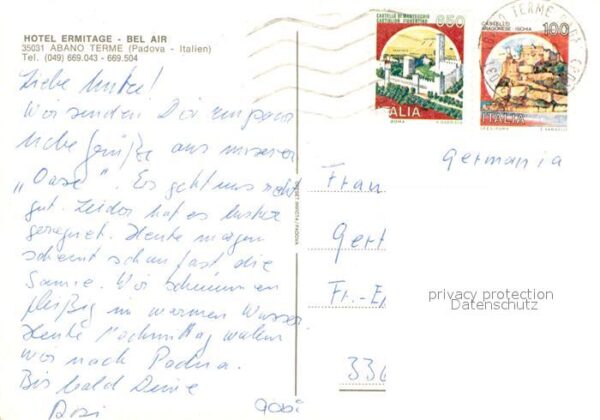 HOTEL ERMITAGE - BEL AIR
35031 ABANO TERME (Padova - Italien)
Tel. (049) 669.043 - 669.504
CASTELLO DI MONTECCHIO
CASTIGLION FIORENTINO
650
ITALIA
ROMA
CASTELLO
ARAGONESE ISCHIA
100
ITALIA
TERME
Liebe
Wir senden Dir ein paar
liebe Grüße aus unserer
„Oase". Es geht uns recht
gut. Leider hat es bisher
geregnet. Heute morgen
scheint schon fast die
Sonne. Wir schwimmen
fleißig im warmen Wasser.
Heute Nachmittag wollen
wir nach Padua.
Bis bald Deine
Germania
Frau
Gert
Fr.-E
336
privacy protection
Datenschutz